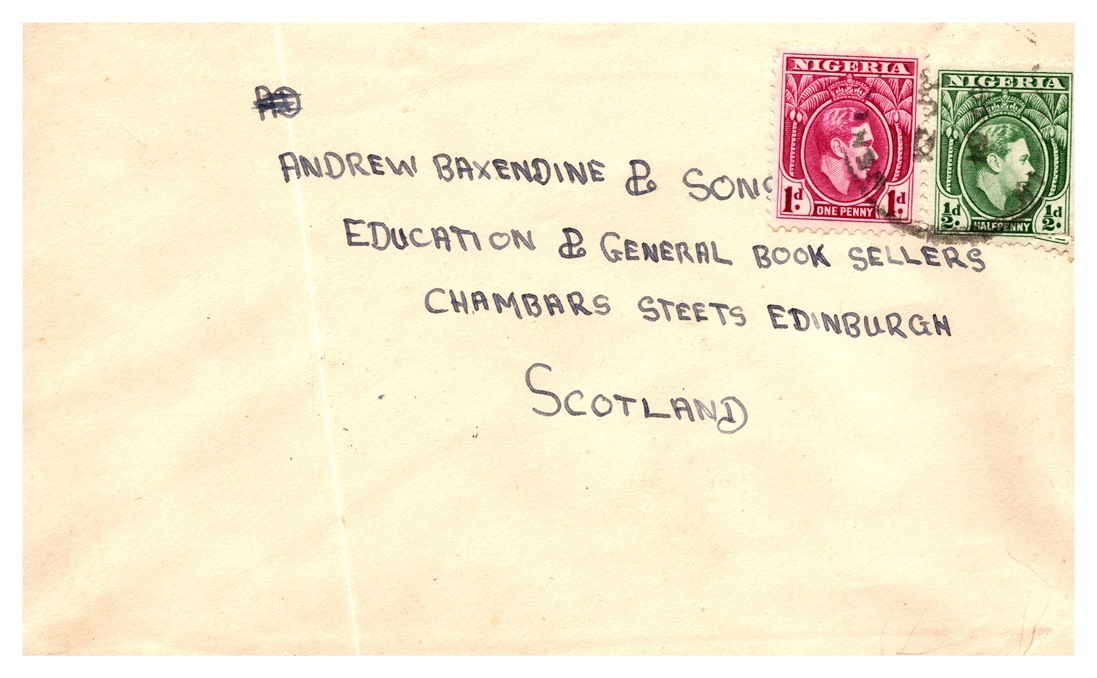 NIGERIA
NIGERIA
ANDREW BAXENDINE & SONS
1d. ONE PENNY 1d.
½d. HALFPENNY ½d.
EDUCATION & GENERAL BOOK SELLERS
CHAMBARS STEETS EDINBURGH
SCOTLAND